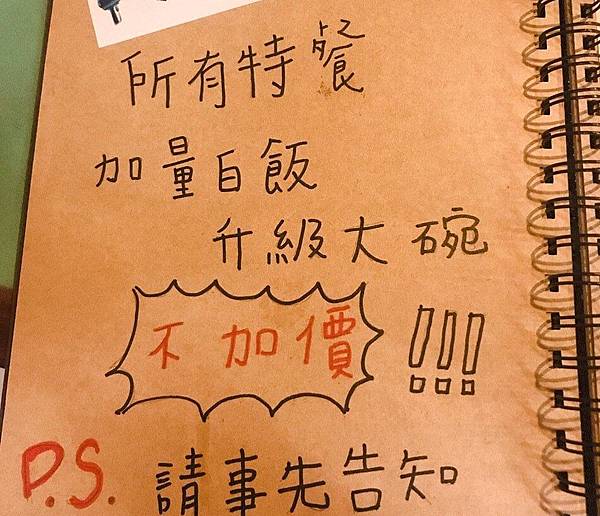 所有特餐
加量白飯
升級大碗
不加價!!!
P.S. 請事先告知